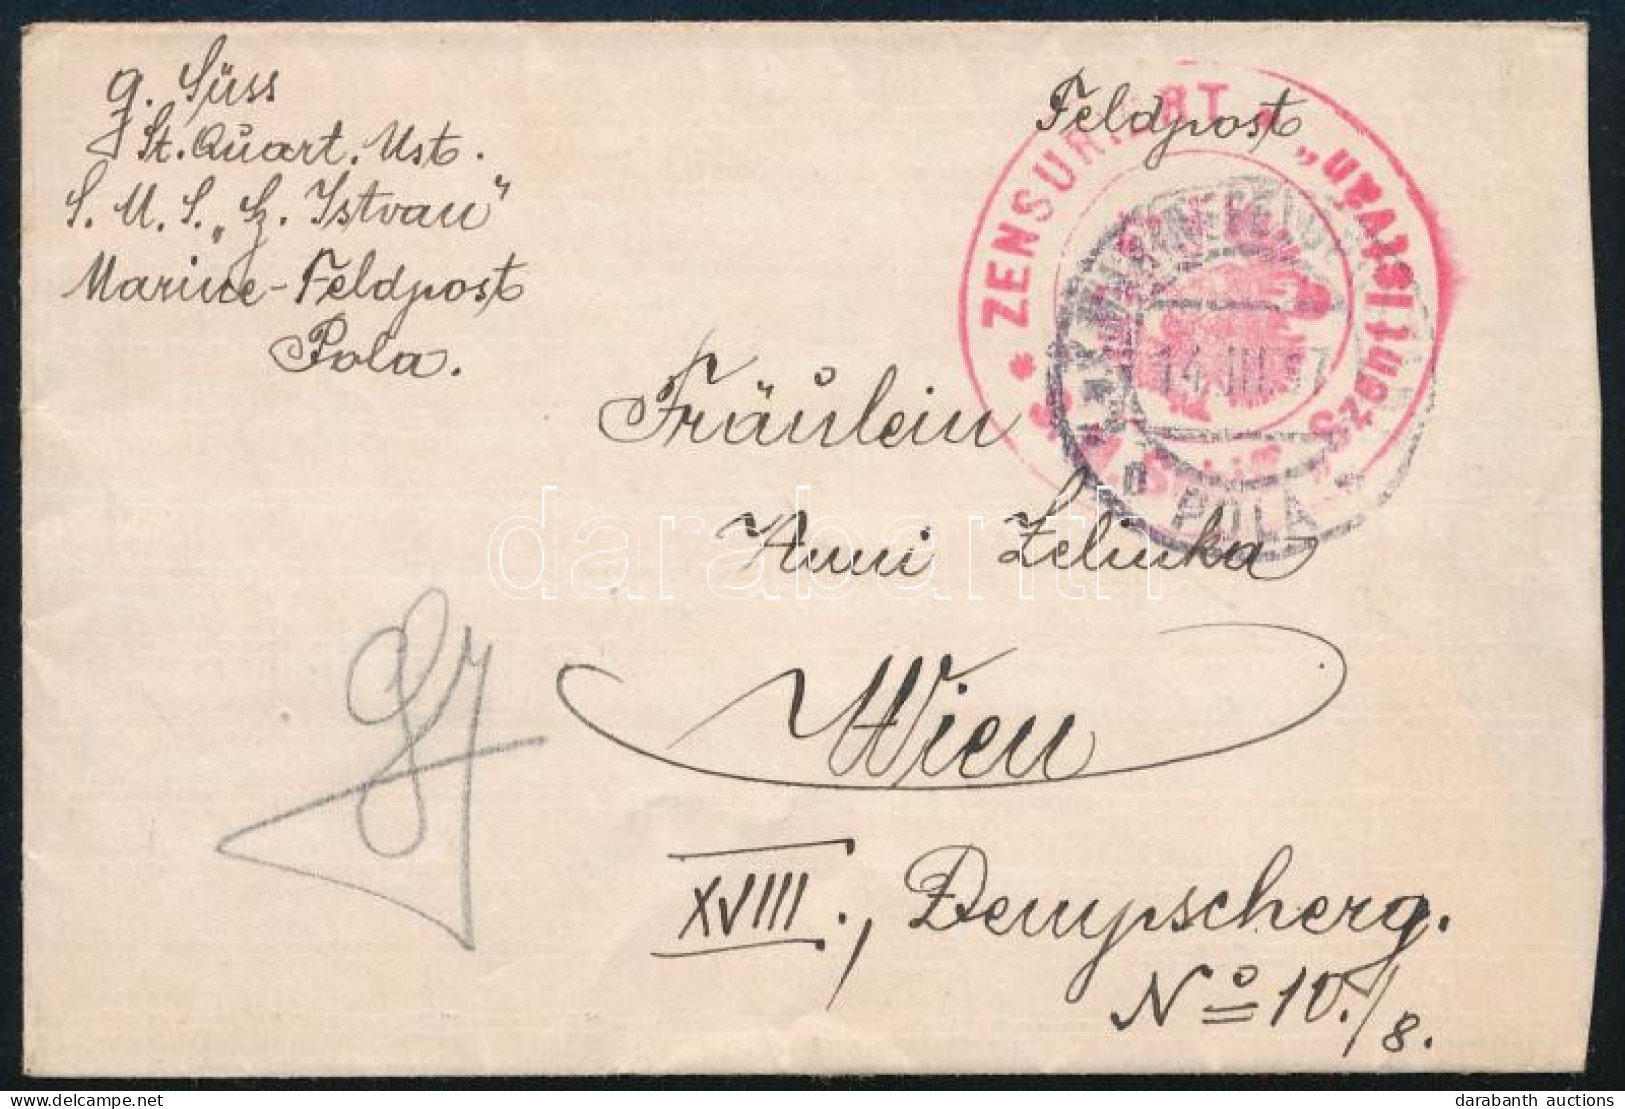 g. Süss
St. Quart. Mst.
S. M. S. „Sz. Istvan"
Marine-Feldpost
Pola.
Feldpost
ZENSURIERT
S.M.S. „Szent Istvan"
14.III.17
POLA
Fräulein
Anni Zelinka
Wien
XVIII., Dempscherg.
No 10./8.
darabanth
darabanth auctions